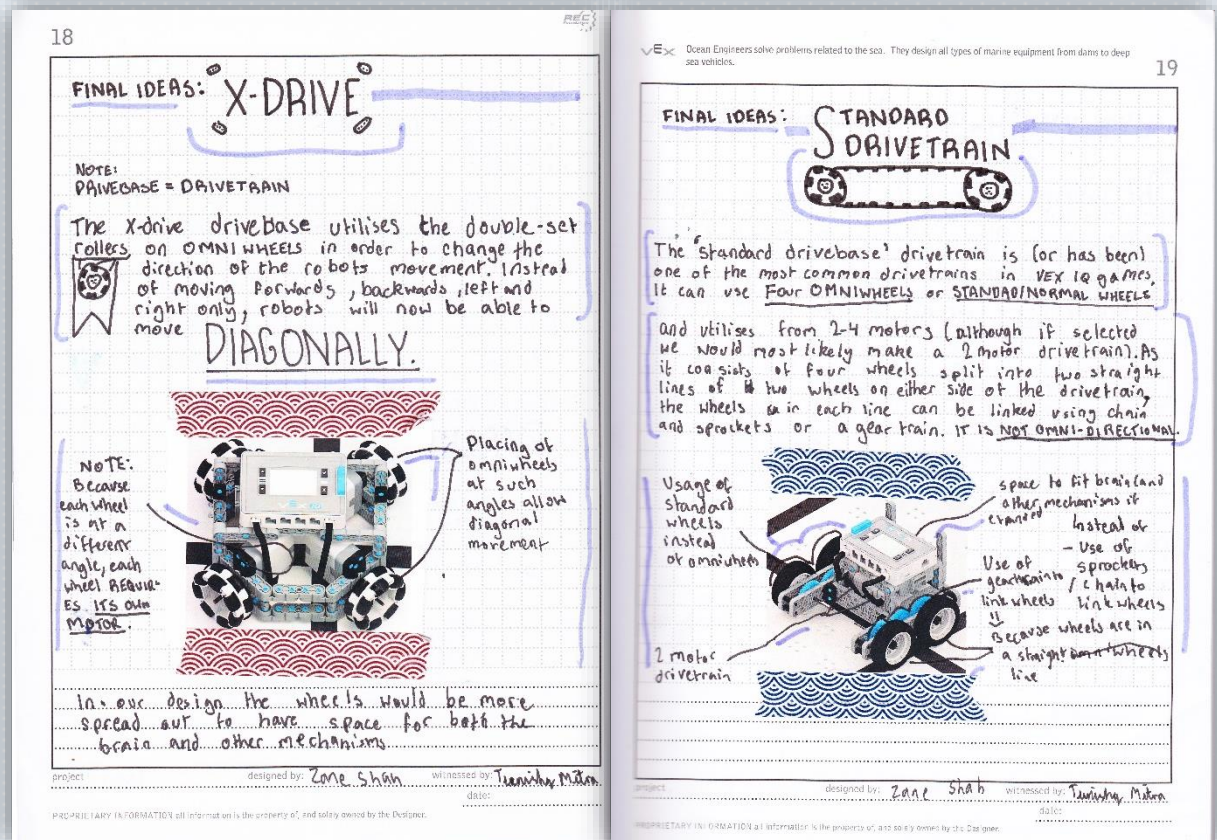 18
REC
FINAL IDEAS: X-DRIVE
NOTE:
DRIVEBASE = DRIVETRAIN
The X-drive drivebase utilises the double-set
rollers on OMNIWHEELS in order to change the
direction of the robots movement. Instead
of moving forwards, backwards, left and
right only, robots will now be able to
move
DIAGONALLY.
NOTE:
Because
each wheel
is at a
different
angle, each
wheel REQUIR-
ES ITS OWN
MOTOR.
Placing of
omniwheels
at such
angles allow
diagonal
movement
In our design the wheels would be more
spread out to have space for both the
brain and other mechanisms
project designed by: Zane Shah witnessed by: Mitra
date:
PROPRIETARY INFORMATION all information is the property of, and solely owned by the Designer.
VEX Ocean Engineers solve problems related to the sea. They design all types of marine equipment from dams to deep
sea vehicles.
19
FINAL IDEAS: STANDARD
DRIVETRAIN
The "standard drivebase' drivetrain is (or has been)
one of the most common drivetrains in VEX IQ games.
It can use FOUR OMNIWHEELS or STANDAD/NORMAL WHEELS
and utilises from 2-4 motors (although if selected
we would most likely make a 2 motor drivetrain). As
it consists of four wheels split into two straight
lines of two wheels on either side of the drivetrain,
the wheels in each line can be linked using chain
and sprockets or a gear train. IT IS NOT OMNI-DIRECTIONAL.
Usage of
standard
wheels
instead
of omniwheels
2 motor
drivetrain
space to fit brain (and
other mechanisms if
expanded
Use of
geartrain to
link wheels
Instead of
- Use of
sprockets
/ chain to
link wheels
Because wheels are in
a straight
line
project designed by: Zane Shah witnessed by: Mitra
date:
PROPRIETARY INFORMATION all information is the property of, and solely owned by the Designer.